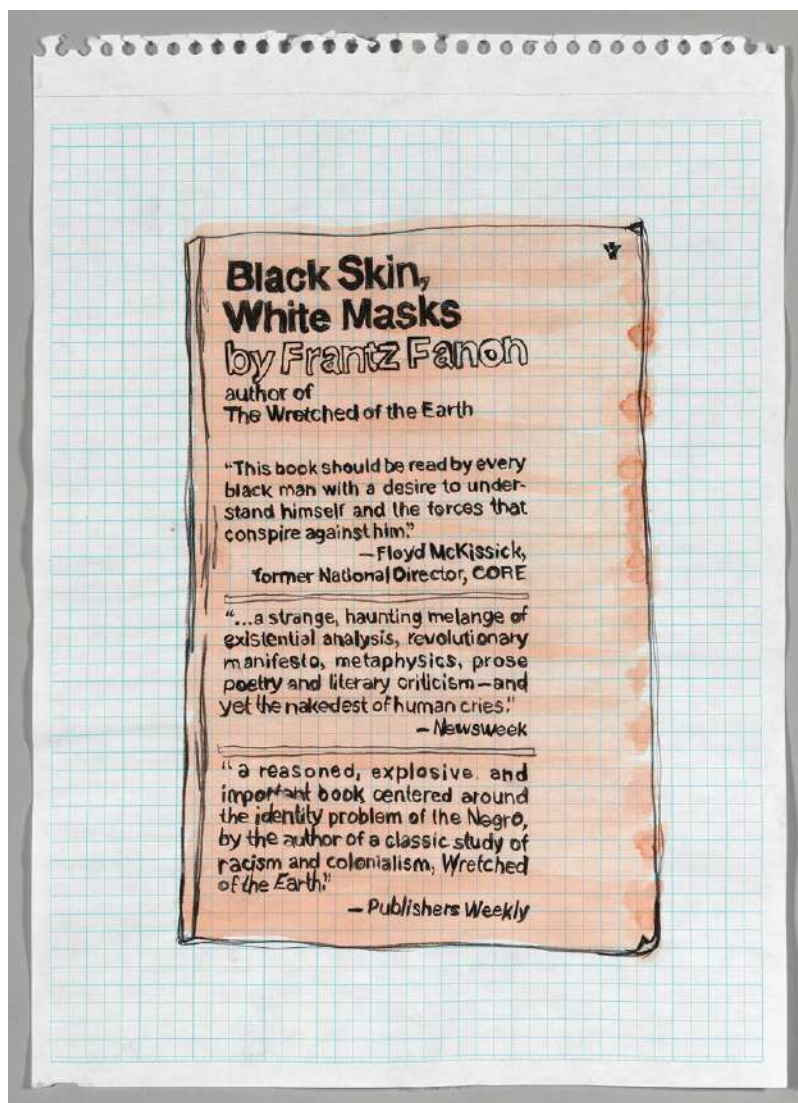 Black Skin,
White Masks
by Frantz Fanon
author of
The Wretched of the Earth
“This book should be read by every
black man with a desire to under-
stand himself and the forces that
conspire against him.”
—Floyd McKissick,
former National Director, CORE
“...a strange, haunting melange of
existential analysis, revolutionary
manifesto, metaphysics, prose
poetry and literary criticism—and
yet the nakedest of human cries.”
—Newsweek
“a reasoned, explosive, and
important book centered around
the identity problem of the Negro,
by the author of a classic study of
racism and colonialism, Wretched
of the Earth.”
—Publishers Weekly